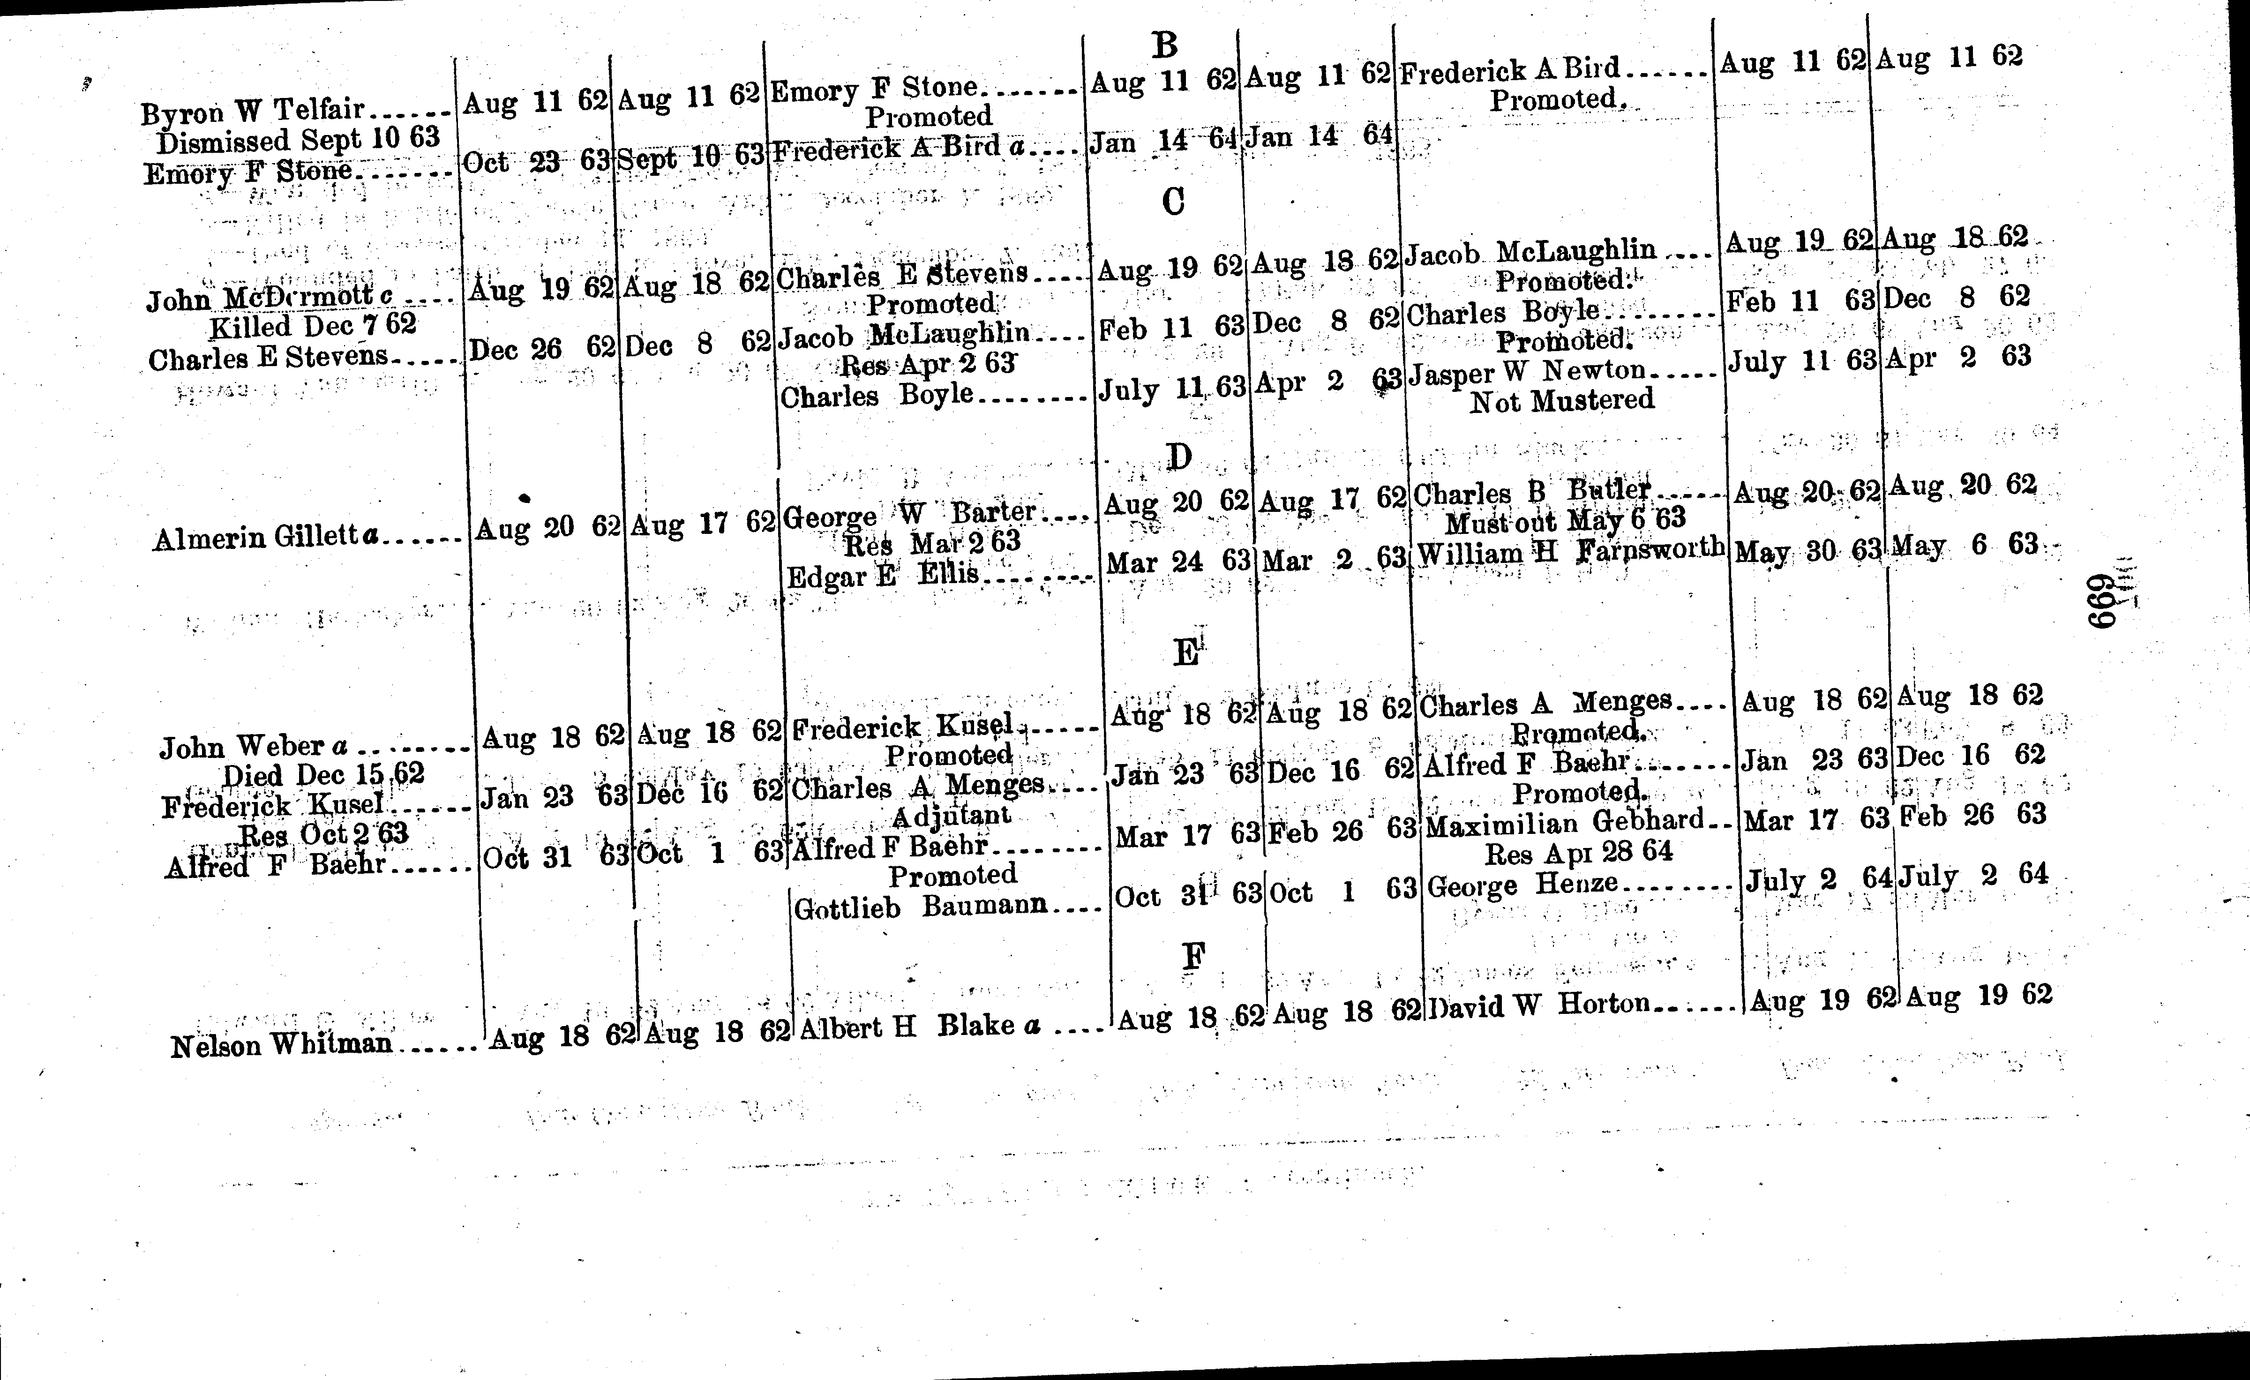 B
Byron W Telfair...... Aug 11 62 Aug 11 62 Emory F Stone....... Aug 11 62 Aug 11 62 Frederick A Bird...... Aug 11 62 Aug 11 62
Dismissed Sept 10 63 Promoted Promoted.
Emory F Stone....... Oct 23 63 Sept 10 63 Frederick A Bird a.... Jan 14 64 Jan 14 64
C
John McDermott c .... Aug 19 62 Aug 18 62 Charles E Stevens.... Aug 19 62 Aug 18 62 Jacob McLaughlin .... Aug 19 62 Aug 18 62
Killed Dec 7 62 Promoted Promoted.
Charles E Stevens..... Dec 26 62 Dec 8 62 Jacob McLaughlin.... Feb 11 63 Dec 8 62 Charles Boyle........ Feb 11 63 Dec 8 62
Res Apr 2 63 Promoted.
Charles Boyle........ July 11 63 Apr 2 63 Jasper W Newton..... July 11 63 Apr 2 63
Not Mustered
D
Almerin Gillett a...... Aug 20 62 Aug 17 62 George W Barter.... Aug 20 62 Aug 17 62 Charles B Butler..... Aug 20 62 Aug 20 62
Res Mar 2 63 Must out May 6 63
Edgar E Ellis........ Mar 24 63 Mar 2 63 William H Farnsworth May 30 63 May 6 63
669
E
John Weber a ........ Aug 18 62 Aug 18 62 Frederick Kusel...... Aug 18 62 Aug 18 62 Charles A Menges.... Aug 18 62 Aug 18 62
Died Dec 15 62 Promoted Promoted.
Frederick Kusel...... Jan 23 63 Dec 16 62 Charles A Menges.... Jan 23 63 Dec 16 62 Alfred F Baehr....... Jan 23 63 Dec 16 62
Res Oct 2 63 Adjutant Promoted.
Alfred F Baehr...... Oct 31 63 Oct 1 63 Alfred F Baehr........ Mar 17 63 Feb 26 63 Maximilian Gebhard.. Mar 17 63 Feb 26 63
Promoted Res Apr 28 64
Gottlieb Baumann.... Oct 31 63 Oct 1 63 George Henze........ July 2 64 July 2 64
F
Nelson Whitman...... Aug 18 62 Aug 18 62 Albert H Blake a .... Aug 18 62 Aug 18 62 David W Horton...... Aug 19 62 Aug 19 62